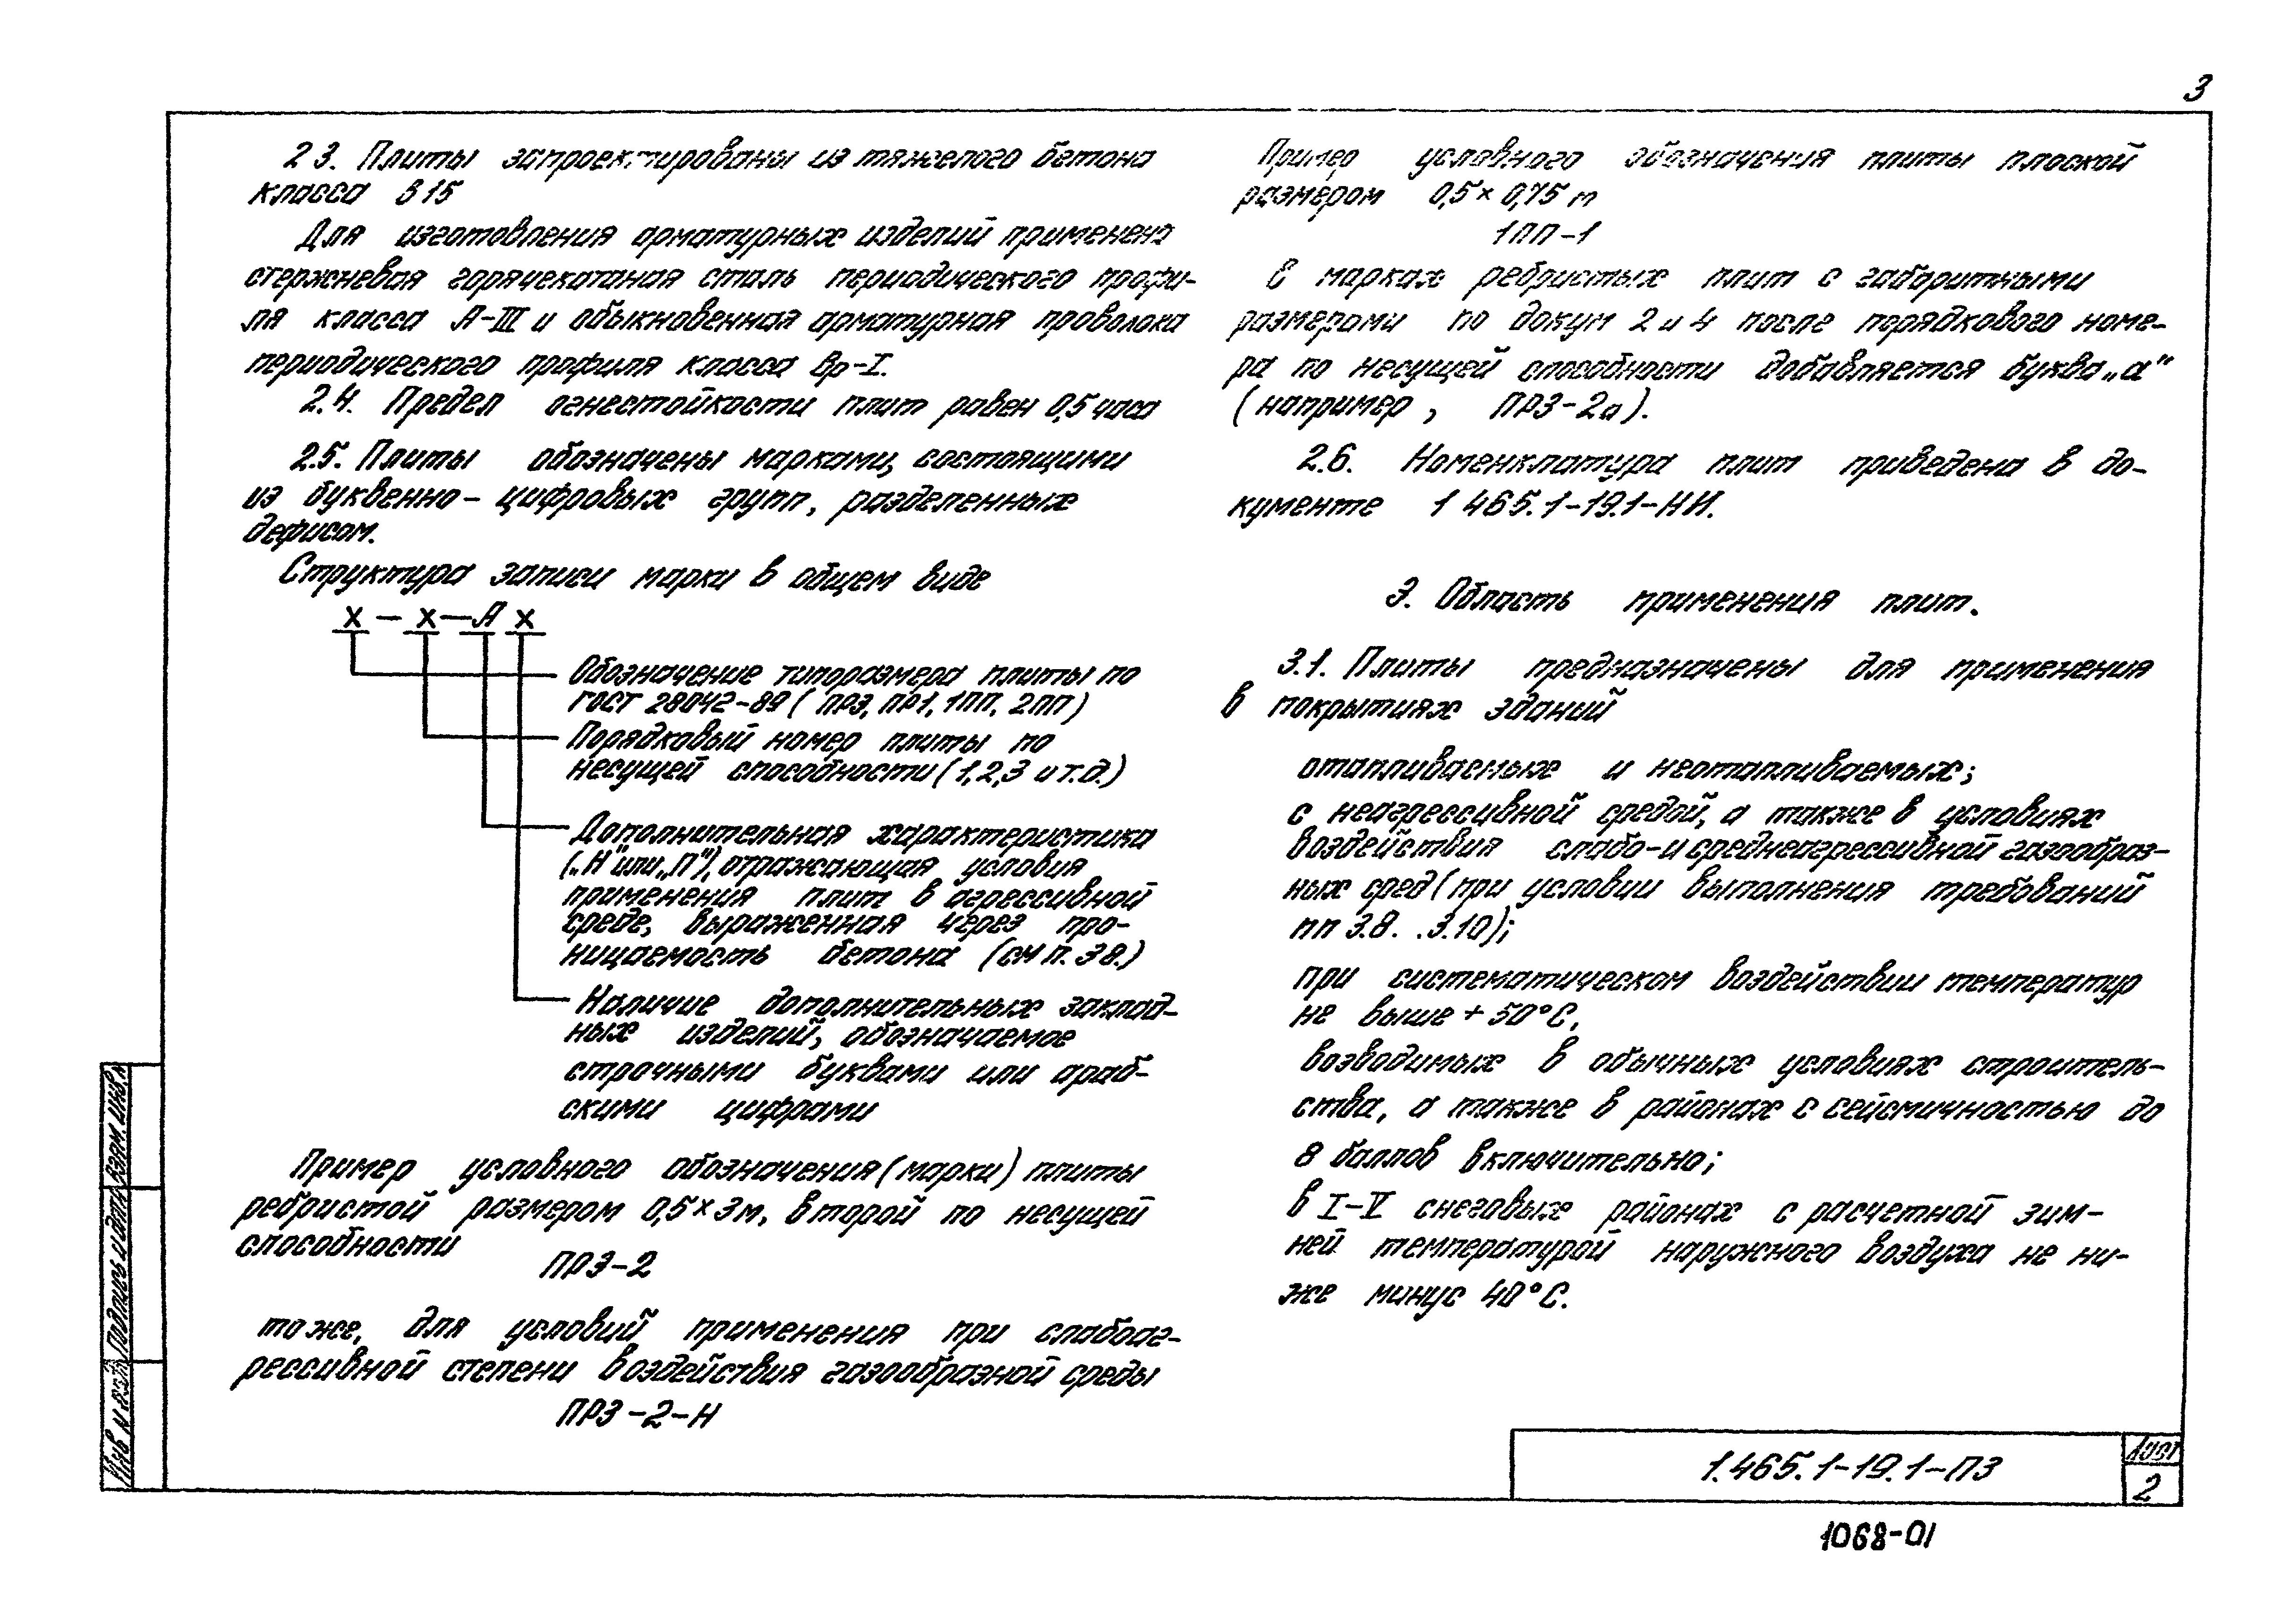 3
2 3. Плиты запроектированы из тяжелого бетона
класса В 15
Для изготовления арматурных изделий применена
стержневая горячекатаная сталь периодического профи-
ля класса А-III и обыкновенная арматурная проволока
периодического профиля класса Вр-I.
2.4. Предел огнестойкости плит равен 0,5 часа
2.5. Плиты обозначены марками, состоящими
из буквенно-цифровых групп, разделенных
дефисом.
Структура записи марки в общем виде
х - х - А х
Обозначение типоразмера плиты по
ГОСТ 28042-89 ( ПР3, ПР1, 1ПП, 2ПП)
Порядковый номер плиты по
несущей способности (1,2,3 и т.д.)
Дополнительная характеристика
(„Н" или „П"), отражающая условия
применения плит в агрессивной
среде, выраженная через про-
ницаемость бетона (см п. 3 8.)
Наличие дополнительных заклад-
ных изделий, обозначаемое
строчными буквами или араб-
скими цифрами
Пример условного обозначения (марки) плиты
ребристой размером 0,5×3м, второй по несущей
способности
ПР3-2
то же, для условий применения при слабоаг-
рессивной степени воздействия газообразной среды
ПР3-2-Н
Пример условного обозначения плиты плоской
размером 0,5×0,75 м
1ПП-1
В марках ребристых плит с габаритными
размерами по докум 2 и 4 после порядкового номе-
ра по несущей способности добавляется буква „а"
(например, ПР3-2а).
2.6. Номенклатура плит приведена в до-
кументе 1 465.1-19.1-НИ.
3. Область применения плит.
3.1. Плиты предназначены для применения
в покрытиях зданий
отапливаемых и неотапливаемых;
с неагрессивной средой, а также в условиях
воздействия слабо- и среднеагрессивной газообраз-
ных сред (при условии выполнения требований
пп 3.8. .3.10);
при систематическом воздействии температур
не выше +50°С,
возводимых в обычных условиях строитель-
ства, а также в районах с сейсмичностью до
8 баллов включительно;
в I-V снеговых районах с расчетной зим-
ней температурой наружного воздуха не ни-
же минус 40°С.
Взам. инв. №
Подпись и дата
Инв № подл
1.465.1-19.1-ПЗ
Лист
2
1068-01